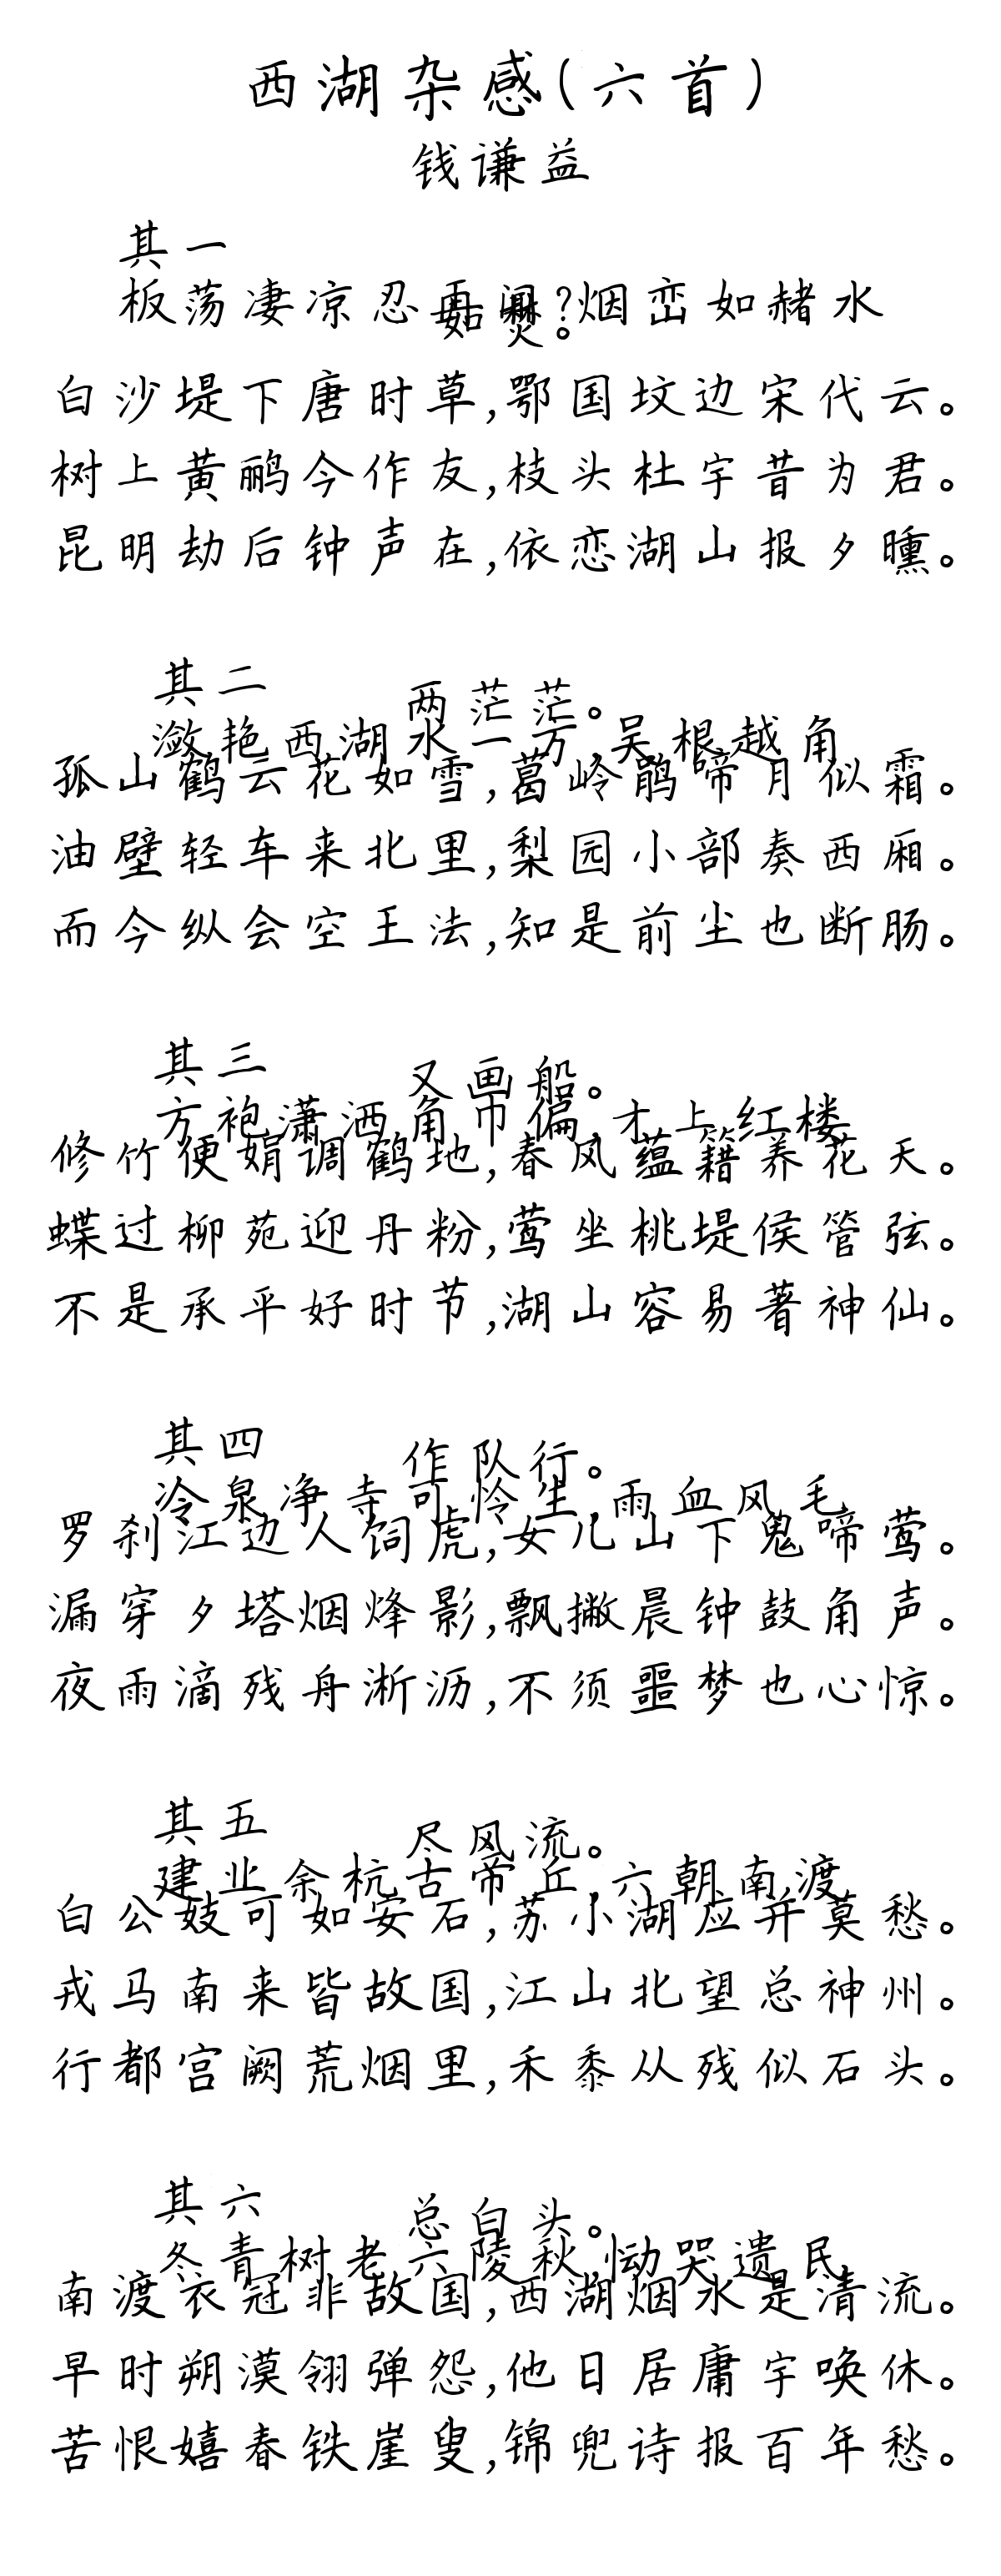 西湖杂感(六首)
钱谦益
其一
板荡凄凉忍再闻?烟峦如赭水
如焚。
白沙堤下唐时草,鄂国坟边宋代云。
树上黄鹂今作友,枝头杜宇昔为君。
昆明劫后钟声在,依恋湖山报夕曛。
其二
潋艳西湖水一方,吴根越角
两茫茫。
孤山鹤云花如雪,葛岭鹃啼月似霜。
油壁轻车来北里,梨园小部奏西厢。
而今纵会空王法,知是前尘也断肠。
其三
方袍潇洒角巾偏,才上红楼
又画船。
修竹便娟调鹤地,春风蕴籍养花天。
蝶过柳苑迎丹粉,莺坐桃堤侯管弦。
不是承平好时节,湖山容易著神仙。
其四
冷泉净寺可怜生,雨血风毛
作队行。
罗刹江边人饲虎,女儿山下鬼啼莺。
漏穿夕塔烟烽影,飘撇晨钟鼓角声。
夜雨滴残舟淅沥,不须噩梦也心惊。
其五
建业余杭古帝丘,六朝南渡
尽风流。
白公妓可如安石,苏小湖应并莫愁。
戎马南来皆故国,江山北望总神州。
行都宫阙荒烟里,禾黍从残似石头。
其六
冬青树老六陵秋,恸哭遗民
总白头。
南渡衣冠非故国,西湖烟水是清流。
早时朔漠翎弹怨,他日居庸宇唤休。
苦恨嬉春铁崖叟,锦兜诗报百年愁。